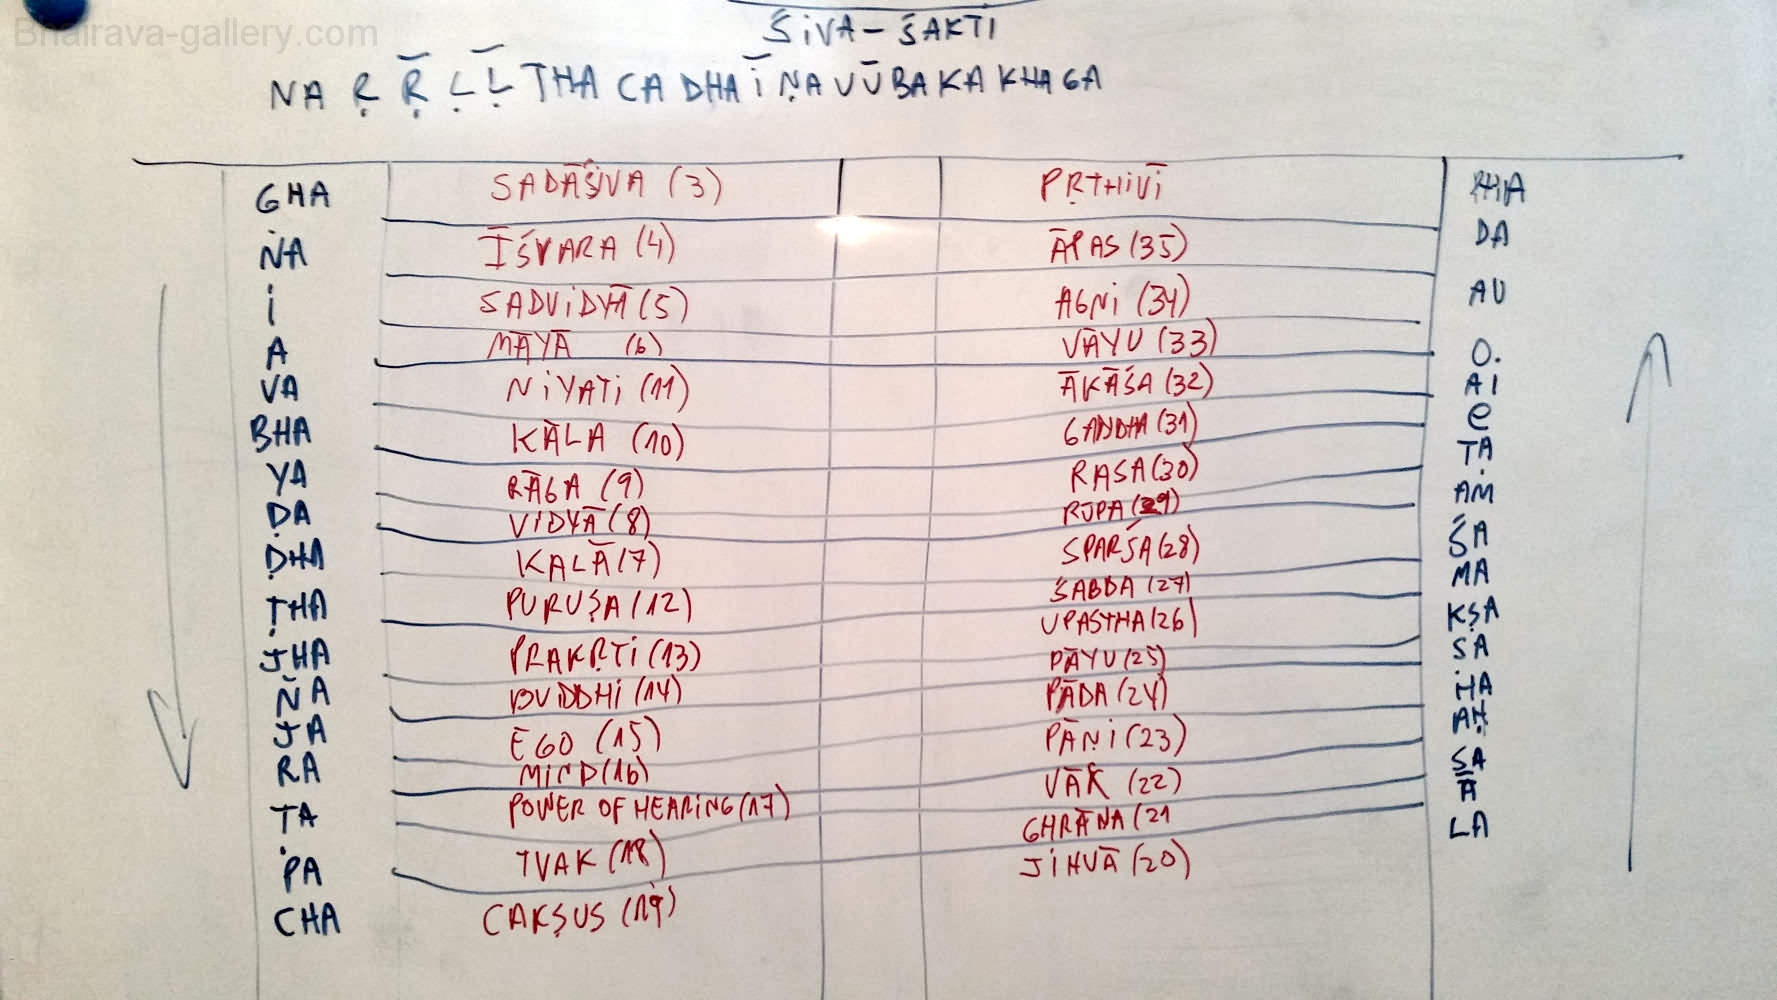 Bhairava-gallery.com
ŚiVA – ŚAKTI
NA Ṛ Ṝ Ḷ Ḹ THA CA DHA Ī ṆA U Ū BA KA KHA GA
GHA SADĀŚIVA (3) PṚTHIVĪ
ṄA ĪŚVARA (4) ĀPAS (35) DA
i SADViDYĀ (5) AGNi (34) AU
A MĀYĀ (6) VĀYU (33) O.
VA NiYATi (11) ĀKĀŚA (32) AI
BHA KĀLA (10) GANDHA (31) e
YA RĀGA (9) RASA (30) TA
ḌA ViDYĀ (8) RŪPA (29) AṀ
ḌHA KALĀ (7) SPARŚA (28) ŚA
ṬHA PURUṢA (12) ŚABDA (27) MA
JHA PRAKṚTi (13) UPASTHA (26) KṢA
ÑA BUDDHi (14) PĀYU (25) ṢA
JA EGO (15) PĀDA (24) HA
RA MiND (16) PĀṆi (23) AḤ
TA POWER OF HEARiNG (17) VĀK (22) SA
PA TVAK (18) GHRĀṆA (21 Ā
CHA CAKṢUS (19) JiHVĀ (20) LA